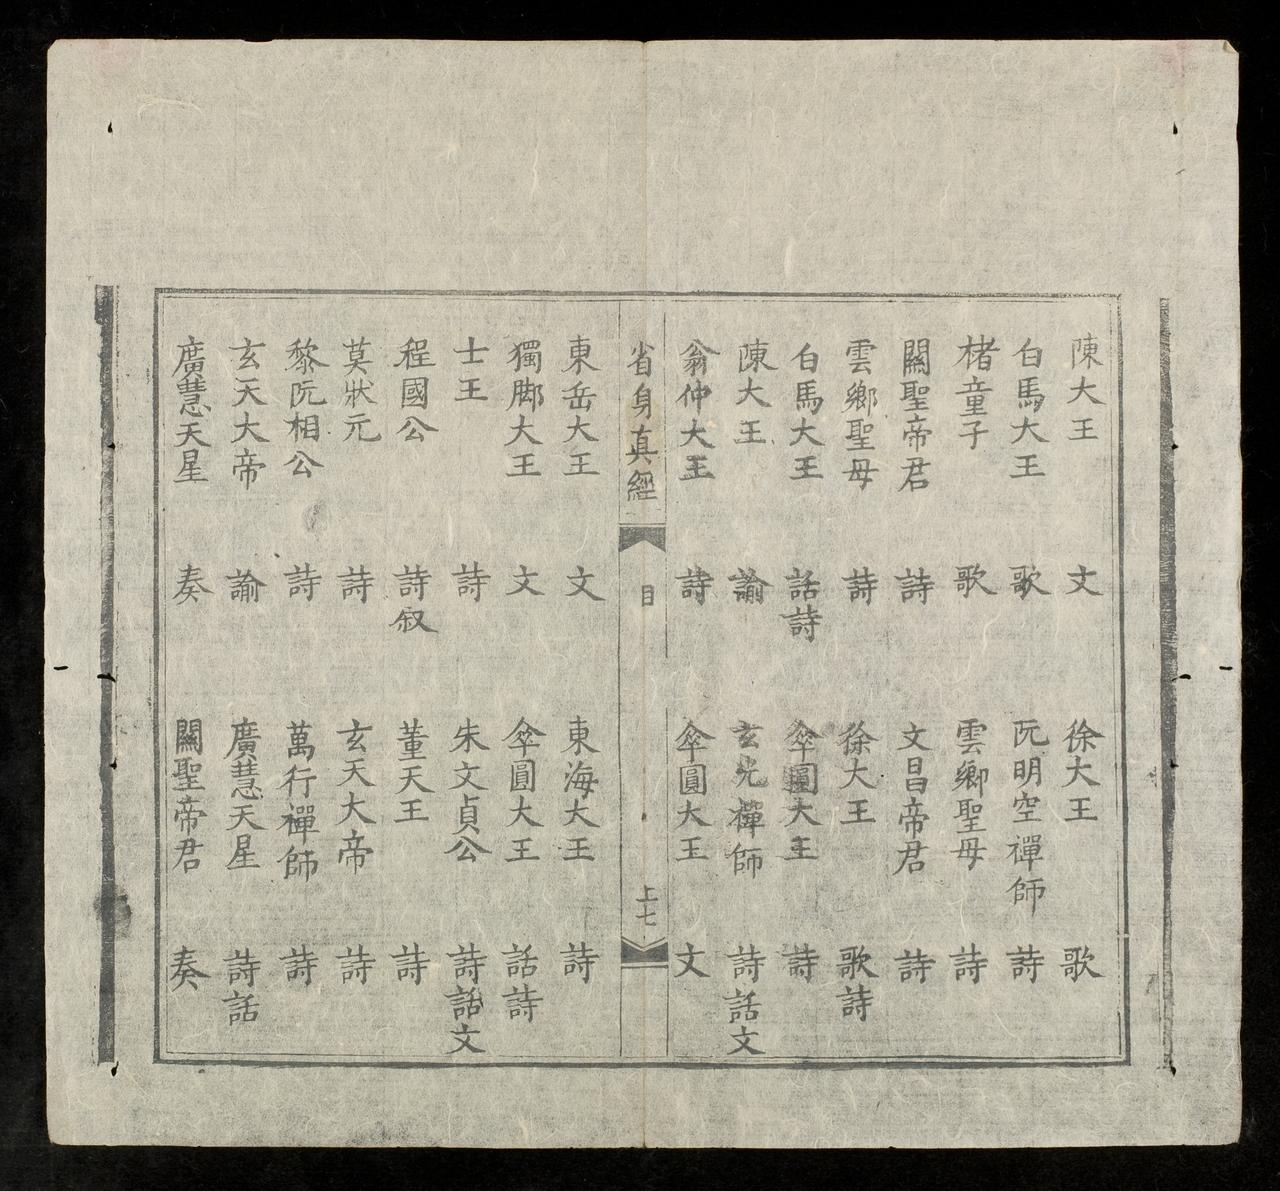 陳大王 文 徐大王 歌
白馬大王 歌 阮明空禪師 詩
楮童子 歌 雲鄉聖母 詩
關聖帝君 詩 文昌帝君 詩
雲鄉聖母 詩 徐大王 歌詩
白馬大王 話詩 傘圓大王 詩
陳大王 諭 玄光禪師 詩話文
翁仲大王 詩 傘圓大王 文
省身真經 目 上七
東岳大王 文 東海大王 詩
獨脚大王 文 傘圓大王 話詩
士王 詩 朱文貞公 詩話文
程國公 詩叙 董天王 詩
莫狀元 詩 玄天大帝 詩
黎阮相公 詩 萬行禪師 詩
玄天大帝 諭 廣慧天星 詩話
廣慧天星 奏 關聖帝君 奏